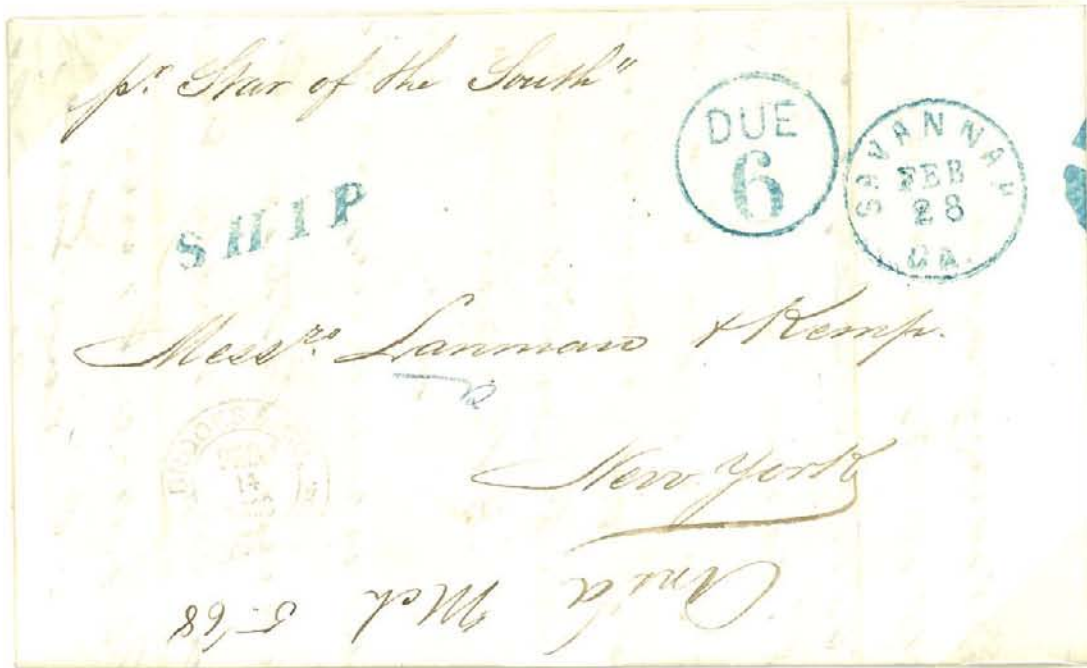 pr. Star of the South"
DUE
6
SAVANNAH
FEB
28
GA.
SHIP
Messrs. Lanman & Kemp.
New York
14
Mch 5-68